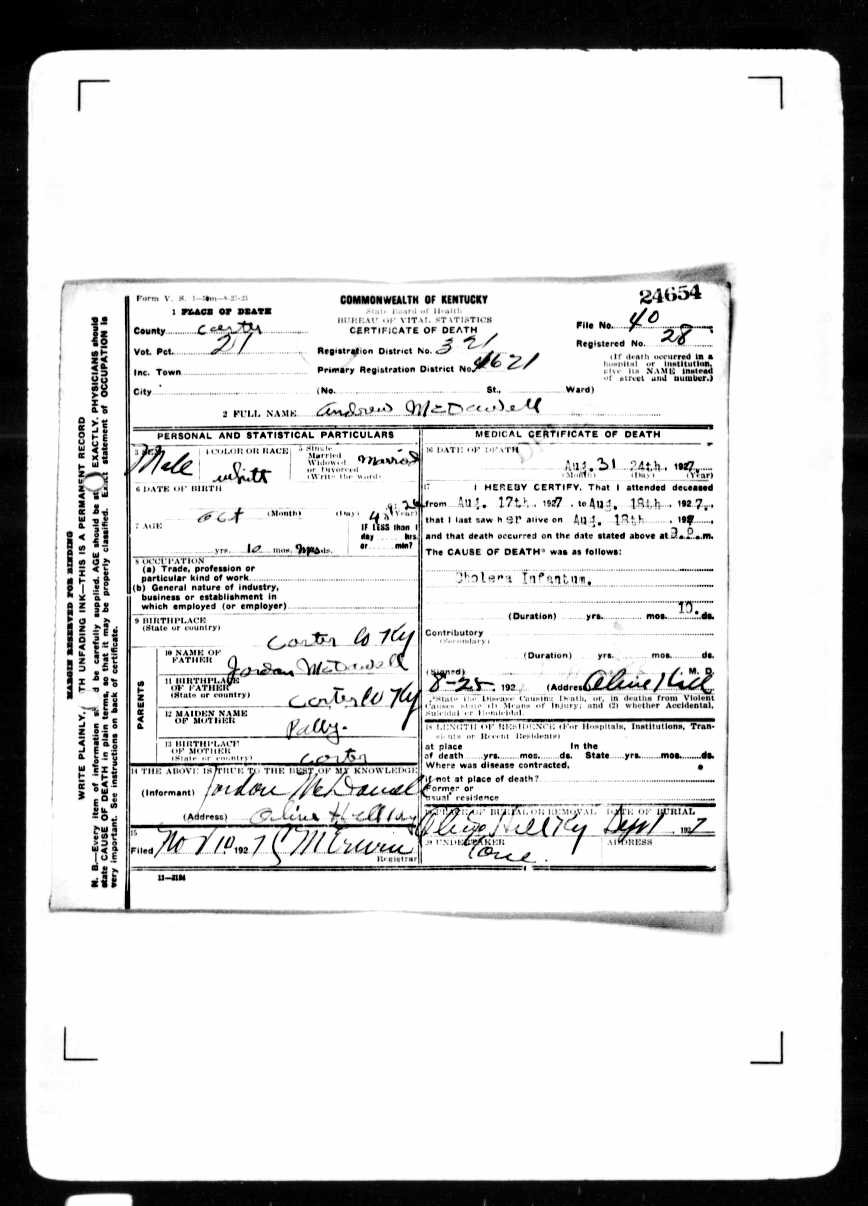 Form V. S.
COMMONWEALTH OF KENTUCKY
24654
1 PLACE OF DEATH
State Board of Health
BUREAU OF VITAL STATISTICS
CERTIFICATE OF DEATH
County Carter
File No. 40
Vot. Pct. 21
Registration District No. 321
Registered No. 28
Inc. Town
Primary Registration District No. 4621
(If death occurred in a hospital or institution, give its NAME instead of street and number.)
City (No. St., Ward)
2 FULL NAME Andrew McDowell
PERSONAL AND STATISTICAL PARTICULARS
3 SEX Male
4 COLOR OR RACE White
5 Single Married Widowed or Divorced (Write the word) Married
6 DATE OF BIRTH
Oct (Month) (Day) (Year)
7 AGE
yrs. 10 mos. ds.
IF LESS than 1 day hrs. or min?
8 OCCUPATION
(a) Trade, profession or particular kind of work
(b) General nature of industry, business or establishment in which employed (or employer)
9 BIRTHPLACE
(State or country)
Carter Co Ky
PARENTS
10 NAME OF FATHER Jordan McDowell
11 BIRTHPLACE OF FATHER (State or country) Carter Co Ky
12 MAIDEN NAME OF MOTHER
13 BIRTHPLACE OF MOTHER (State or country) Carter
14 THE ABOVE IS TRUE TO THE BEST OF MY KNOWLEDGE
(Informant) Jordon McDowell
(Address) Olive Hill Ky
15
Filed Nov 10 1927
Registrar
11—3184
MEDICAL CERTIFICATE OF DEATH
16 DATE OF DEATH
Aug. 31 24th. 1927
(Month) (Day) (Year)
17 I HEREBY CERTIFY, That I attended deceased
from Aug. 17th. 1927, to Aug. 18th. 1927,
that I last saw her alive on Aug. 18th. 192
and that death occurred on the date stated above at m.
The CAUSE OF DEATH* was as follows:
Cholera Infantum.
(Duration) yrs. mos. 10. ds.
Contributory
(Secondary)
(Duration) yrs. mos. ds.
(Signed) M. D.
8-25 192 (Address) Olive Hill
*State the Disease Causing Death, or, in deaths from Violent Causes state (1) Means of Injury; and (2) whether Accidental, Suicidal or Homicidal.
18 LENGTH OF RESIDENCE (For Hospitals, Institutions, Transients or Recent Residents)
at place of death yrs. mos. ds. In the State yrs. mos. ds.
Where was disease contracted,
if not at place of death?
Former or usual residence
19 PLACE OF BURIAL OR REMOVAL DATE OF BURIAL
Olive Hill Ky Sept 1 1927
20 UNDERTAKER ADDRESS
MARGIN RESERVED FOR BINDING
WRITE PLAINLY, WITH UNFADING INK—THIS IS A PERMANENT RECORD
N. B.—Every item of information should be carefully supplied. AGE should be stated EXACTLY. PHYSICIANS should
state CAUSE OF DEATH in plain terms, so that it may be properly classified. Exact statement of OCCUPATION is
very important. See instructions on back of certificate.